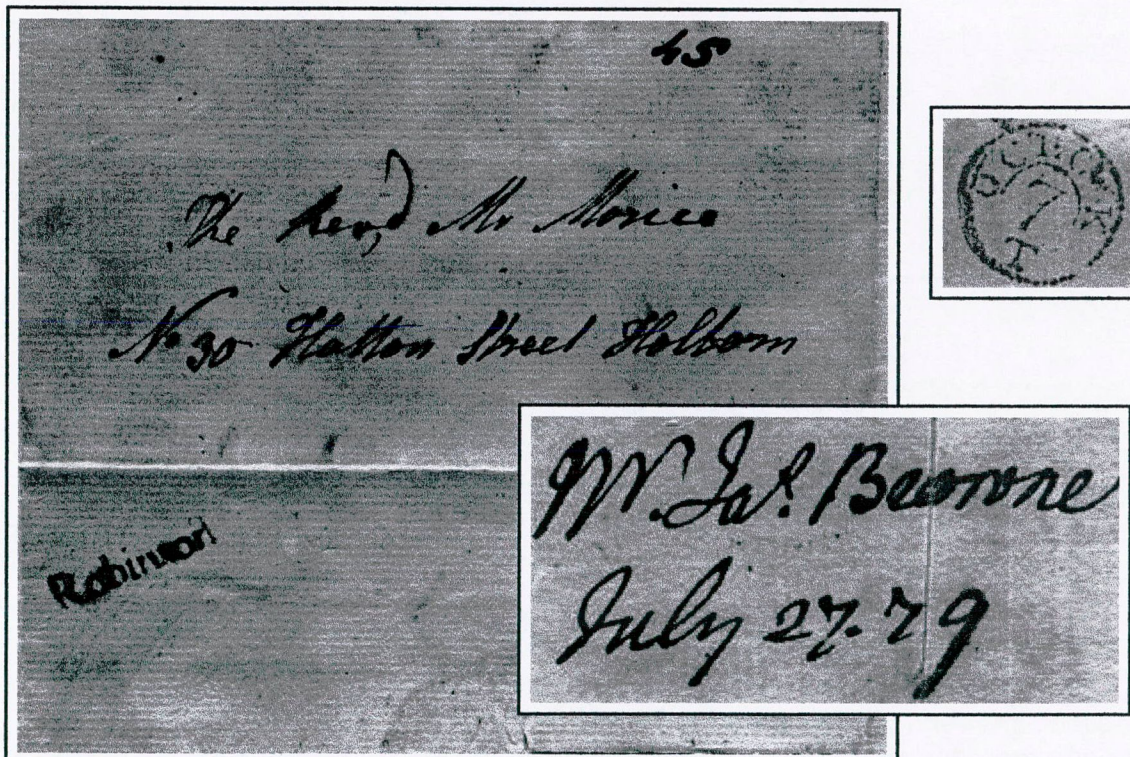 45
The Revd Mr Morice
No 30 Hatton Street Holborn
Robinson
O'CLOCK
7
T
Mr. Jas. Bearone
July 27. 79